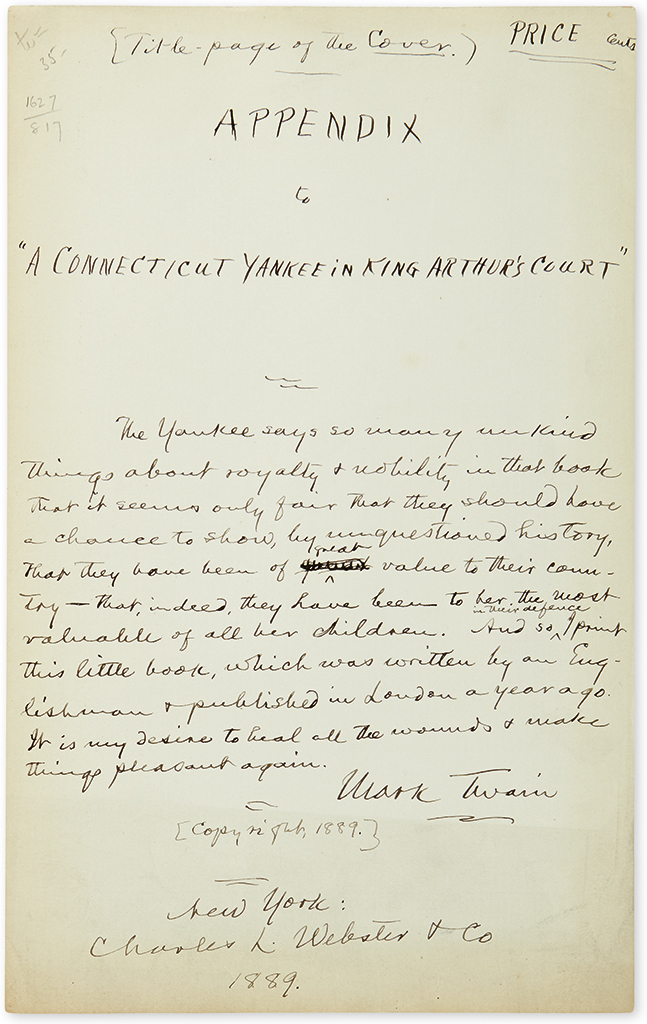 {Title-page of the Cover.) PRICE cents
35-
1627
817
APPENDIX
to
"A CONNECTICUT YANKEE IN KING ARTHUR'S COURT"
The Yankee says so many unkind
things about royalty & nobility in that book
that it seems only fair that they should have
a chance to show, by unquestioned history,
that they have been of great value to their coun-
try — that, indeed, they have been to her the most
valuable of all her children. And so, in their defence I print
this little book, which was written by an Eng-
lishman & published in London a year ago.
It is my desire to heal all the wounds & make
things pleasant again.
Mark Twain
[Copyright, 1889.}
New York:
Charles L. Webster & Co
1889.